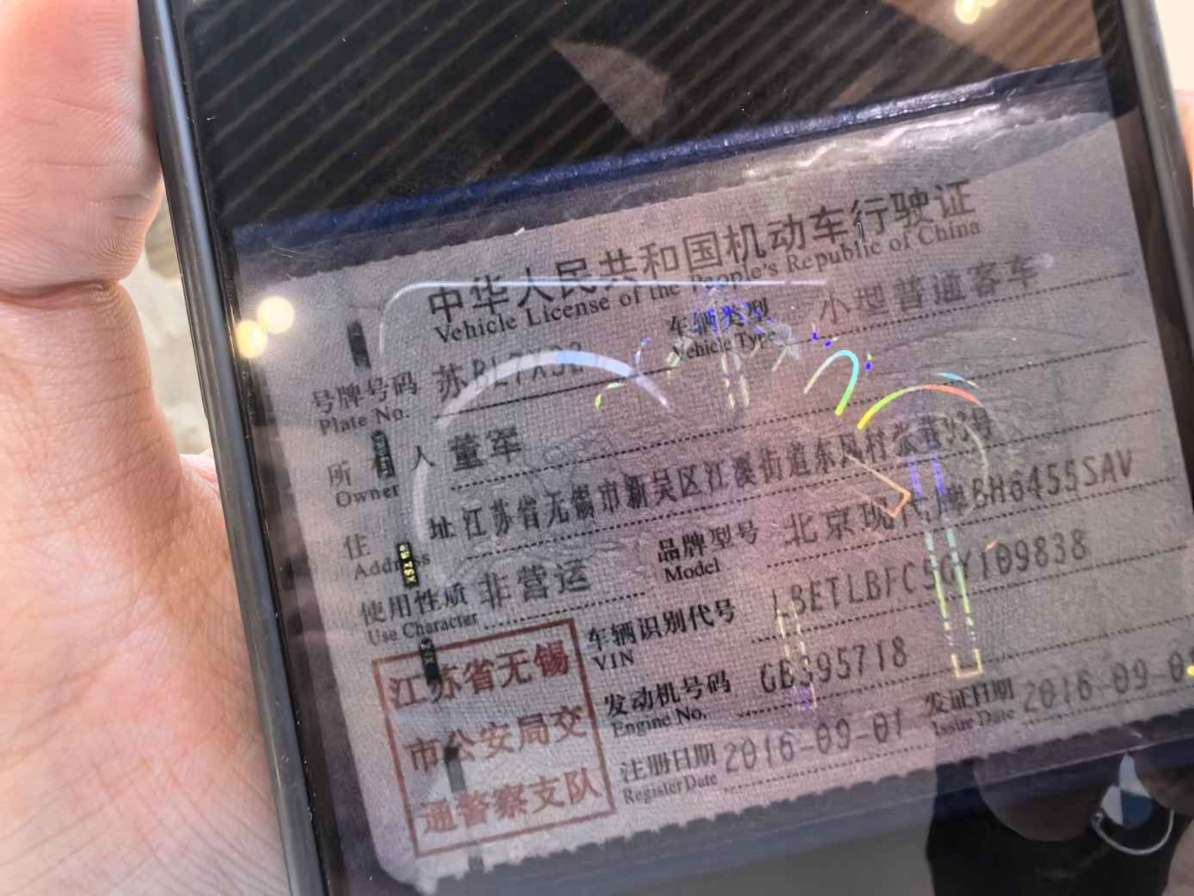 中华人民共和国机动车行驶证
Vehicle License of the People's Republic of China
号牌号码 苏BL7X92 车辆类型 小型普通客车
Plate No. Vehicle Type
所 人 董军
Owner
住 址 江苏省无锡市新吴区江溪街道东风村 93号
Address
使用性质 非营运 品牌型号 北京现代牌BH6455SAV
Use Character Model
车辆识别代号 LBETLBFC5GY109838
VIN
发动机号码 GB395718
Engine No.
注册日期 2016-09-01 发证日期 2016-09-0
Register Date Issue Date
江苏省无锡
市公安局交
通警察支队